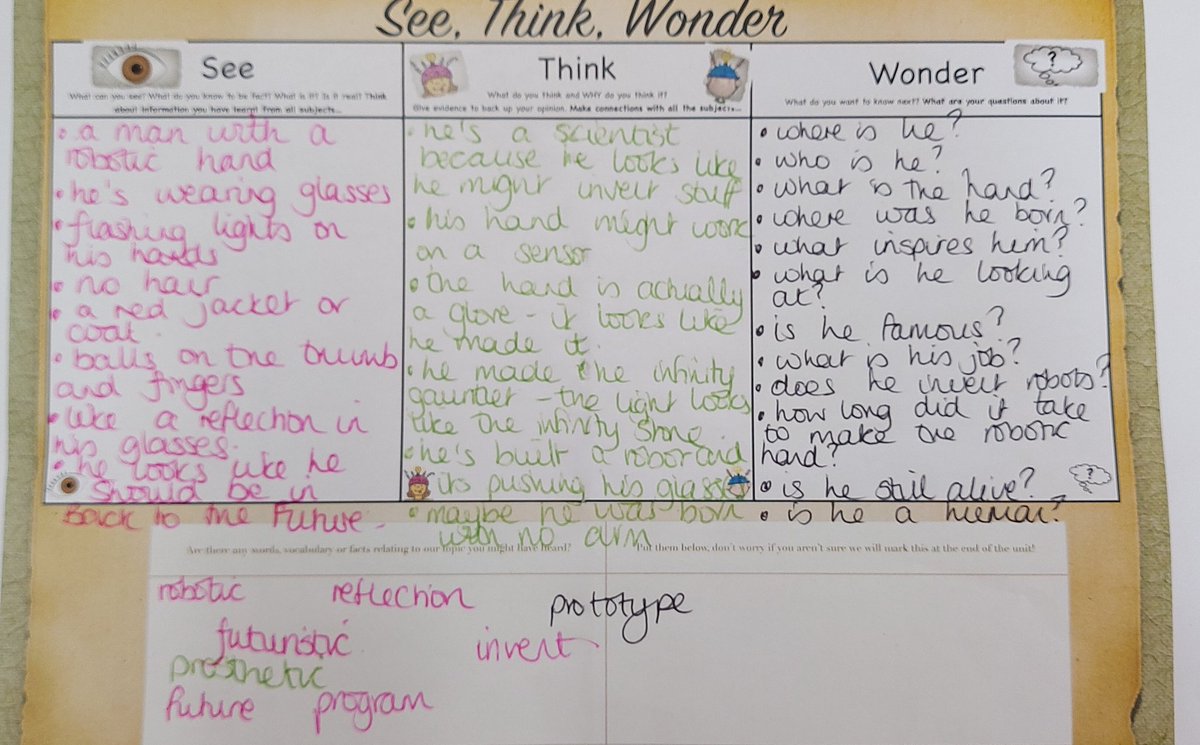 See, Think, Wonder
See
What can you see? What do you know to be fact? What is it? Is it real? Think
about information you have learnt from all subjects...
• a man with a
robotic hand
• he's wearing glasses
• flashing lights on
his hands
• no hair
• a red jacket or
coat.
• balls on the thumb
and fingers
• like a reflection in
his glasses.
• he looks like he
should be in
Back to the Future.
Think
What do you think and WHY do you think it?
Give evidence to back up your opinion. Make connections with all the subjects...
• he's a scientist
because he looks like
he might invent stuff
• his hand might work
on a sensor
• the hand is actually
a glove - it looks like
he made it.
• he made the infinity
gauntlet - the light looks
like the infinity stone.
• he's built a robot and
its pushing his glasses
• maybe he was born
with no arm
Wonder
What do you want to know next? What are your questions about it?
• where is he?
• who is he?
• what is the hand?
• where was he born?
• what inspires him?
• what is he looking
at?
• is he famous?
• what is his job?
• does he invent robots?
• how long did it take
to make the robotic
hand?
• is he still alive?
• is he a human?
Are there any words, vocabulary or facts relating to our topic you might have heard? Put them below, don't worry if you aren't sure we will mark this at the end of the unit!
robotic reflection prototype
futuristic invent
prosthetic
future program